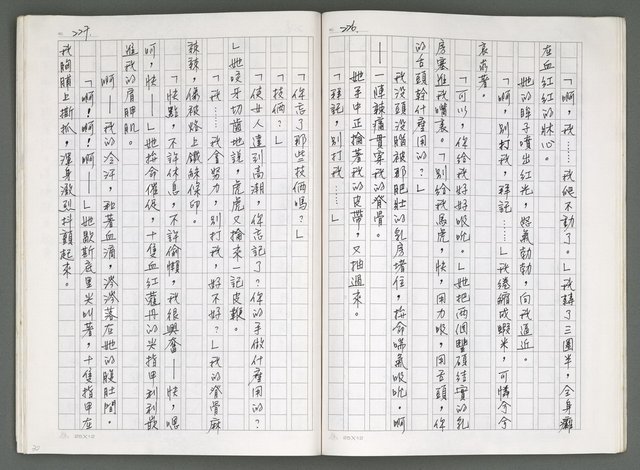 226.
「啊，我……我爬不動了。」我轉了三圈半，全身癱
在血紅紅的牀心。
她的眸子噴出紅光，好氣勃勃，向我逼近。
「啊，別打我，拜託……」我捲縮成蝦米，可憐兮兮
哀求著。
「可以，你給我好好吸吮。」她把兩個豐碩結實的乳
房塞進我嘴裏。「別給我馬虎，快，用力吸，用舌頭，你
的舌頭幹什麼用的？」
我沒頭沒臉被那肥肚的乳房堵住，拚命喘氣吸吮。啊
——一陣辣痛貫穿我的脊骨。
她手中正掄著我的皮帶，又抽過來。
「拜託，別打我……」
25X12
227.
「你忘了那些技倆嗎？」
「技倆？」
「使女人達到高潮，你忘記了？你的手做什麼用的？
」她咬牙切齒地說，虎虎又掄來一記皮鞭。
「我……我會努力，別打我，好不好？」我的脊骨麻
辣辣，像被烙上鐵絲條印。
「快點，不許休息，不許偷懶，我很興奮——快，嗯
呵，快——」她拚命催促，十隻血紅蔻丹的尖指甲刺刺嵌
進我的肩胛肌。
啊——我的冷汗，和著血滴，涔涔落在她的腹肚間。
「啊！啊！啊——」她歇斯底里尖叫著，十隻指甲在
我胸膛上撕抓，渾身激烈抖顫起來。
25X12